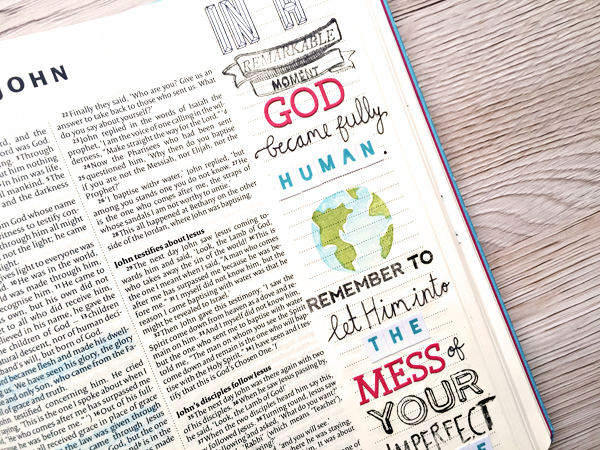 JOHN
rd, and the
was God.
ning. 3Through
him nothing
In him was life,
ll mankind. 5The
and the darkness
om God whose name
witness to testify con-
through him all might
not the light; he came
ves light to everyone
He was in the world,
was made through him,
recognise him. 11He came to
own, but his own did not
et to all who did receive him,
lieved in his name, he gave the
ne children of God – 13children
descent, nor of human deci-
band's will, but born of God.
became flesh and made his dwell-
us. We have seen his glory, the glory
and only Son, who came from the Fa-
grace and truth.
testified concerning him. He cried
'This is the one I spoke about when
'He who comes after me has surpassed me
he was before me.') 16Out of his full-
all received grace in place of grace
the law was given through
came through Jesus
22Finally they said, 'Who are you? Give us an
answer to take back to those who sent us. What
do you say about yourself?'
23John replied in the words of Isaiah the
prophet, 'I am the voice of one calling in the wil-
derness, "Make straight the way for the Lord."'
24Now the Pharisees who had been sent
25questioned him, 'Why then do you baptise
if you are not the Messiah, nor Elijah, nor the
Prophet?'
26'I baptise with water,' John replied, 'but
among you stands one you do not know. 27He
is the one who comes after me, the straps of
whose sandals I am not worthy to untie.'
28This all happened at Bethany on the other
side of the Jordan, where John was baptising.
John testifies about Jesus
29The next day John saw Jesus coming to-
wards him and said, 'Look, the Lamb of God,
who takes away the sin of the world! 30This is
the one I meant when I said, "A man who comes
after me has surpassed me because he was be-
fore me." 31I myself did not know him, but the
reason I came baptising with water was that he
might be revealed to Israel.'
32Then John gave this testimony: 'I saw the
Spirit come down from heaven as a dove and re-
main on him. 33And I myself did not know him,
but the one who sent me to baptise with water
told me, "The man on whom you see the Spirit
come down and remain is the one who will bap-
tise with the Holy Spirit." 34I have seen and I tes-
tify that this is God's Chosen One.'
John's disciples follow Jesus
35The next day John was there again with two
of his disciples. 36When he saw Jesus passing by,
he said, 'Look, the Lamb of God!'
37When the two disciples heard him say this,
they followed Jesus. 38Turning round, Jesus saw
them following and asked, 'What do you want?'
They said, 'Rabbi' (which means 'Teacher'),
'and you will see.'
where he was staying,
It was about
IN A
REMARKABLE
MOMENT
GOD
became fully
HUMAN.
REMEMBER TO
let Him into
THE
MESS of
YOUR
IMPERFECT